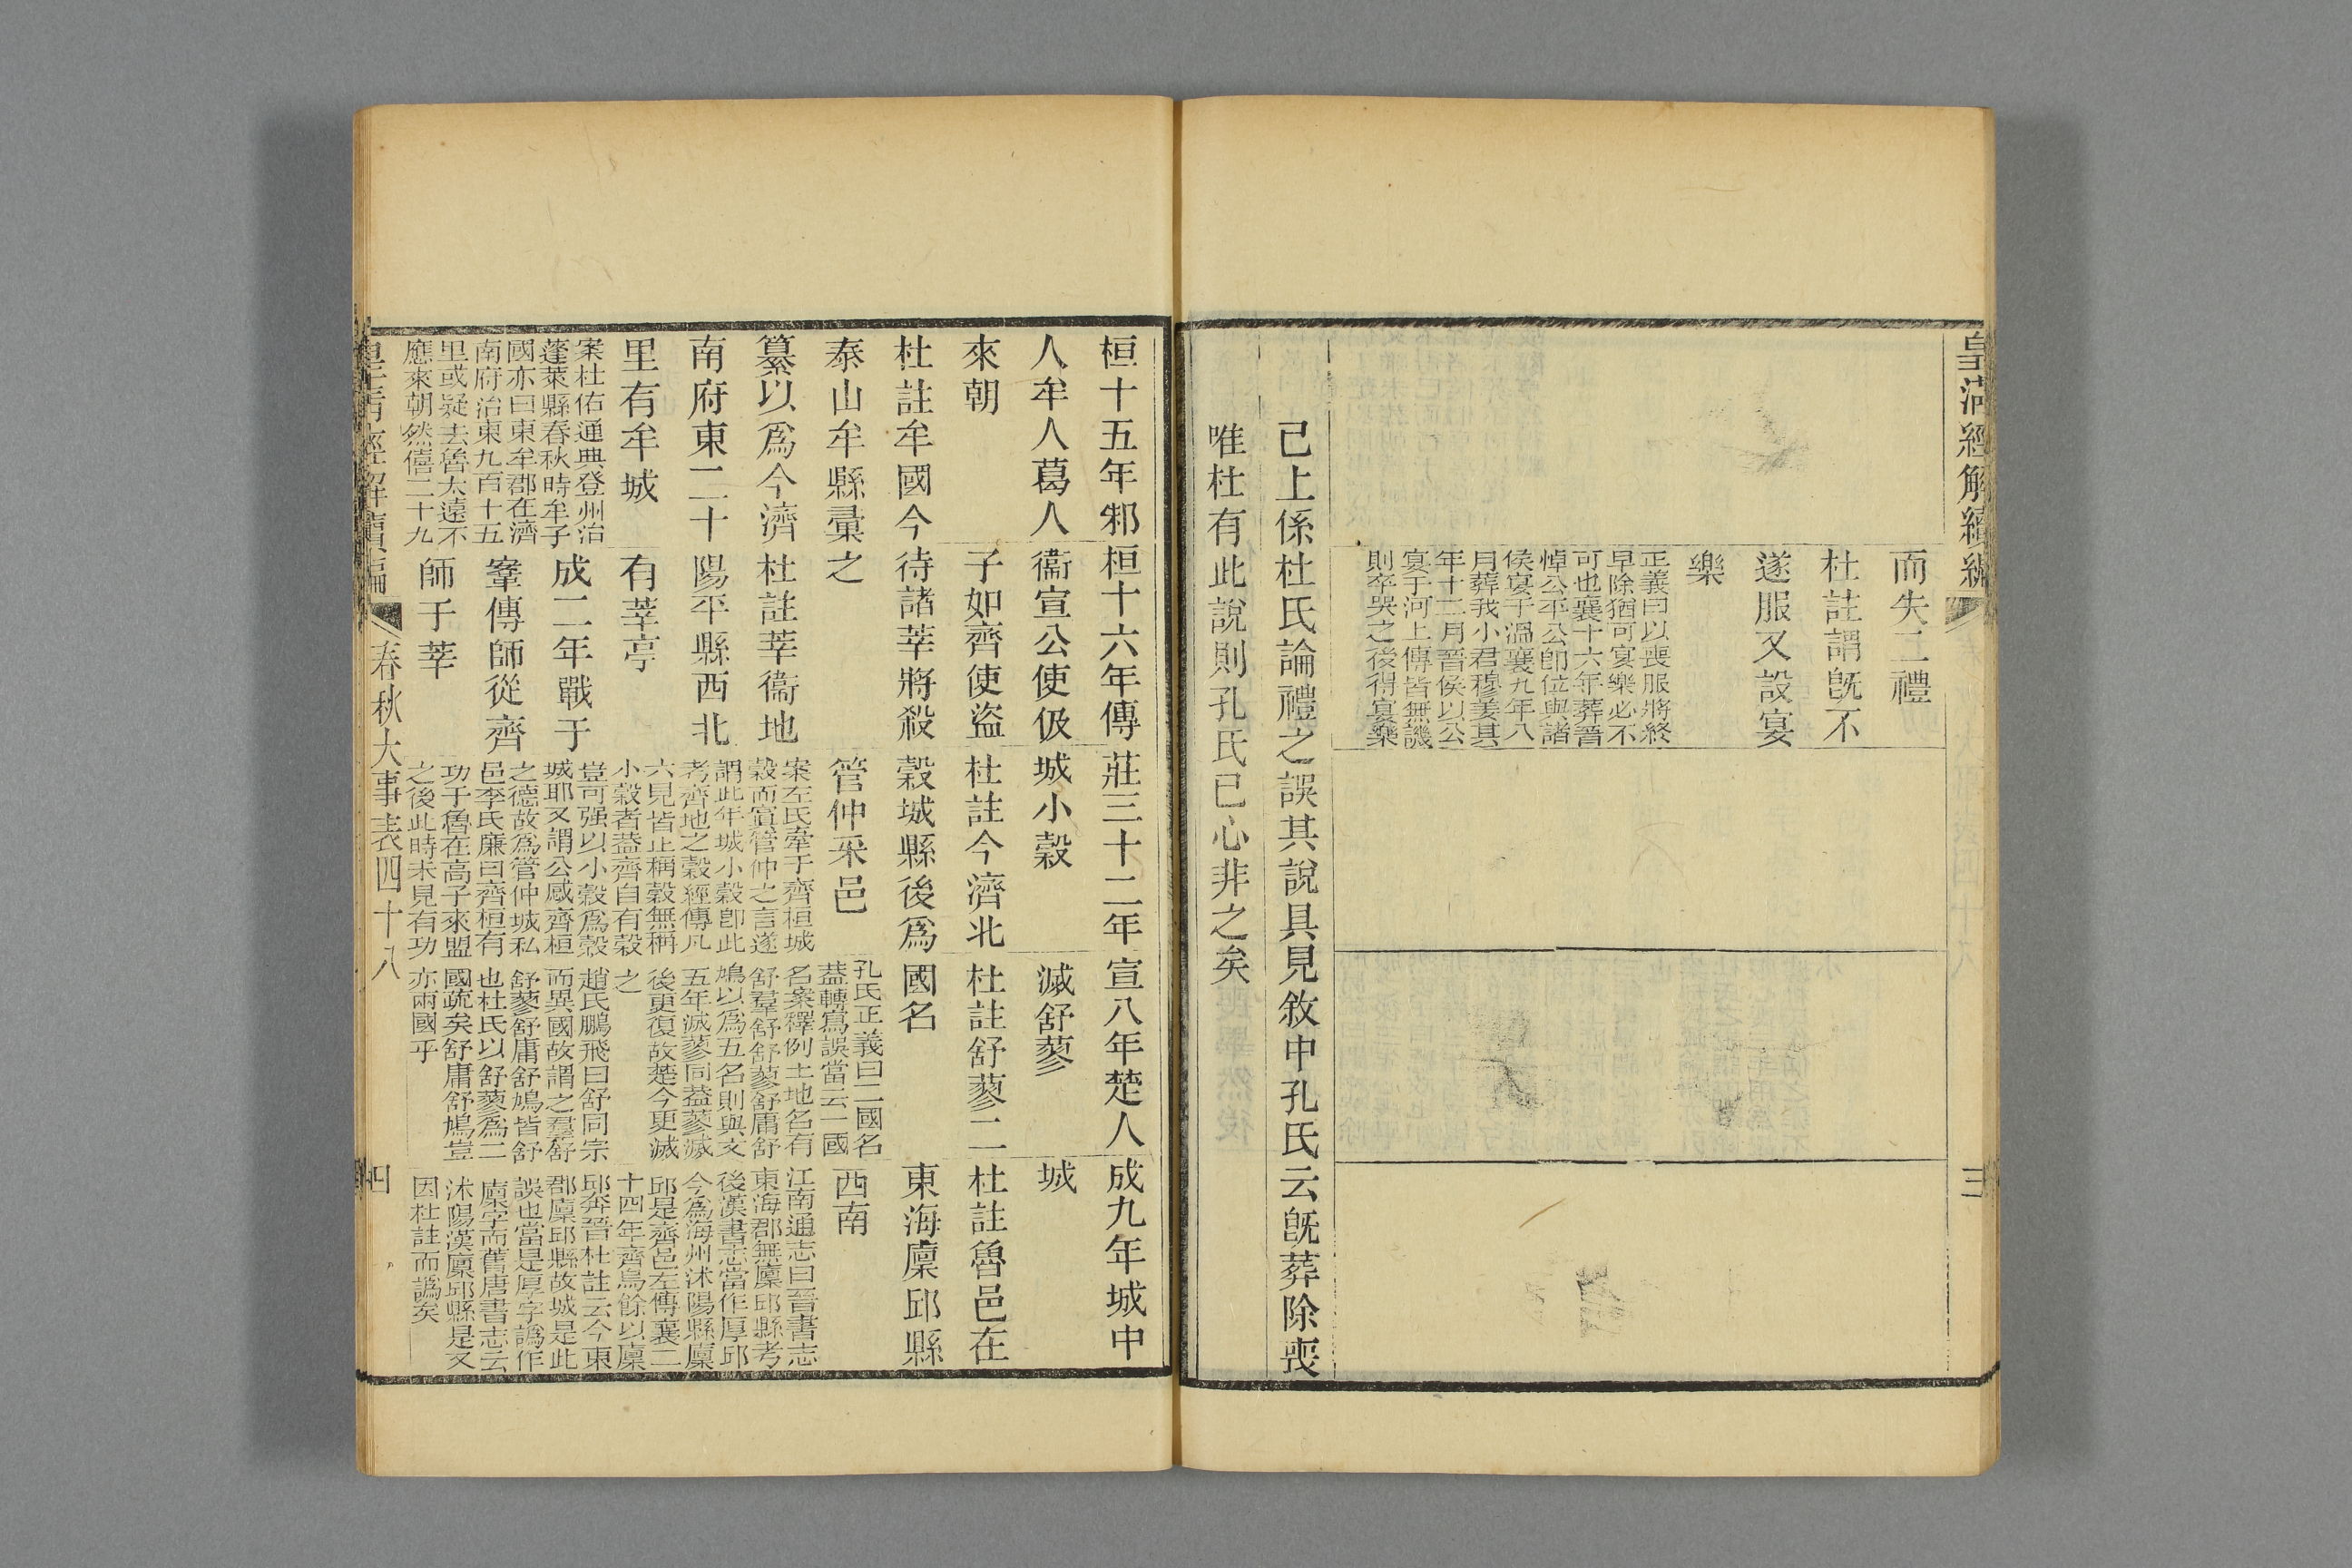 皇淸經解續編
三
而失二禮
杜註謂旣不
遂服又設宴
樂
正義曰以喪服將終
早除猶可宴樂必不
可也襄十六年葬晉
悼公平公卽位與諸
侯宴于溫襄九年八
月葬我小君穆姜其
年十二月晉侯以公
宴于河上傳皆無譏
則卒哭之後得宴樂
已上係杜氏論禮之誤其說具見敘中孔氏云旣葬除喪
唯杜有此說則孔氏已心非之矣
桓十五年邾
人牟人葛人
來朝
杜註牟國今
泰山牟縣彙
纂以爲今濟
南府東二十
里有牟城
案杜佑通典登州治
蓬萊縣春秋時牟子
國亦曰東牟郡在濟
南府治東九百十五
里或疑去魯太遠不
應來朝然僖二十九
桓十六年傳
衞宣公使伋
子如齊使盜
待諸莘將殺
之
杜註莘衞地
陽平縣西北
有莘亭
成二年戰于
鞌傳師從齊
師于莘
莊三十二年
城小穀
杜註今濟北
穀城縣後爲
管仲采邑
案左氏牽于齊桓城
穀而寘管仲之言遂
謂此年城小穀卽此
考齊地之穀經傳凡
六見皆止稱穀無稱
小穀者蓋齊自有穀
豈可强以小穀爲穀
城耶又謂公感齊桓
之德故爲管仲城私
邑李氏廉曰齊桓有
功于魯在高子來盟
之後此時未見有功
宣八年楚人
滅舒蓼
杜註舒蓼二
國名
孔氏正義曰二國名
蓋轉寫誤當云一國
名案釋例土地名有
舒羣舒舒蓼舒庸舒
鳩以爲五名則與文
五年滅蓼同蓋蓼滅
後更復故楚今更滅
之
趙氏鵬飛曰舒同宗
而異國故謂之羣舒
舒蓼舒庸舒鳩皆舒
也杜氏以舒蓼爲二
國疏矣舒庸舒鳩豈
亦兩國乎
成九年城中
城
杜註魯邑在
東海廩邱縣
西南
江南通志曰晉書志
東海郡無廩邱縣考
後漢書志當作厚邱
今爲海州沭陽縣廩
邱是齊邑左傳襄二
十四年齊烏餘以廩
邱奔晉杜註云今東
郡廩邱縣故城是此
誤也當是厚字譌作
廩字而舊唐書志云
沭陽漢廩邱縣是又
因杜註而譌矣
皇淸經解續編
春秋大事表四十八
四